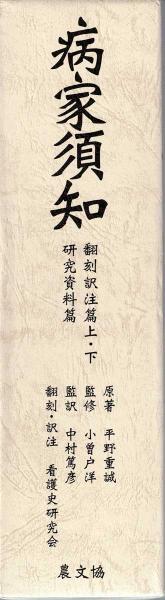 病家須知
翻刻訳注篇上・下
研究資料篇
原著 平野重誠
監修 小曽戸洋
監訳 中村篤彦
翻刻・訳注 看護史研究会
農文協